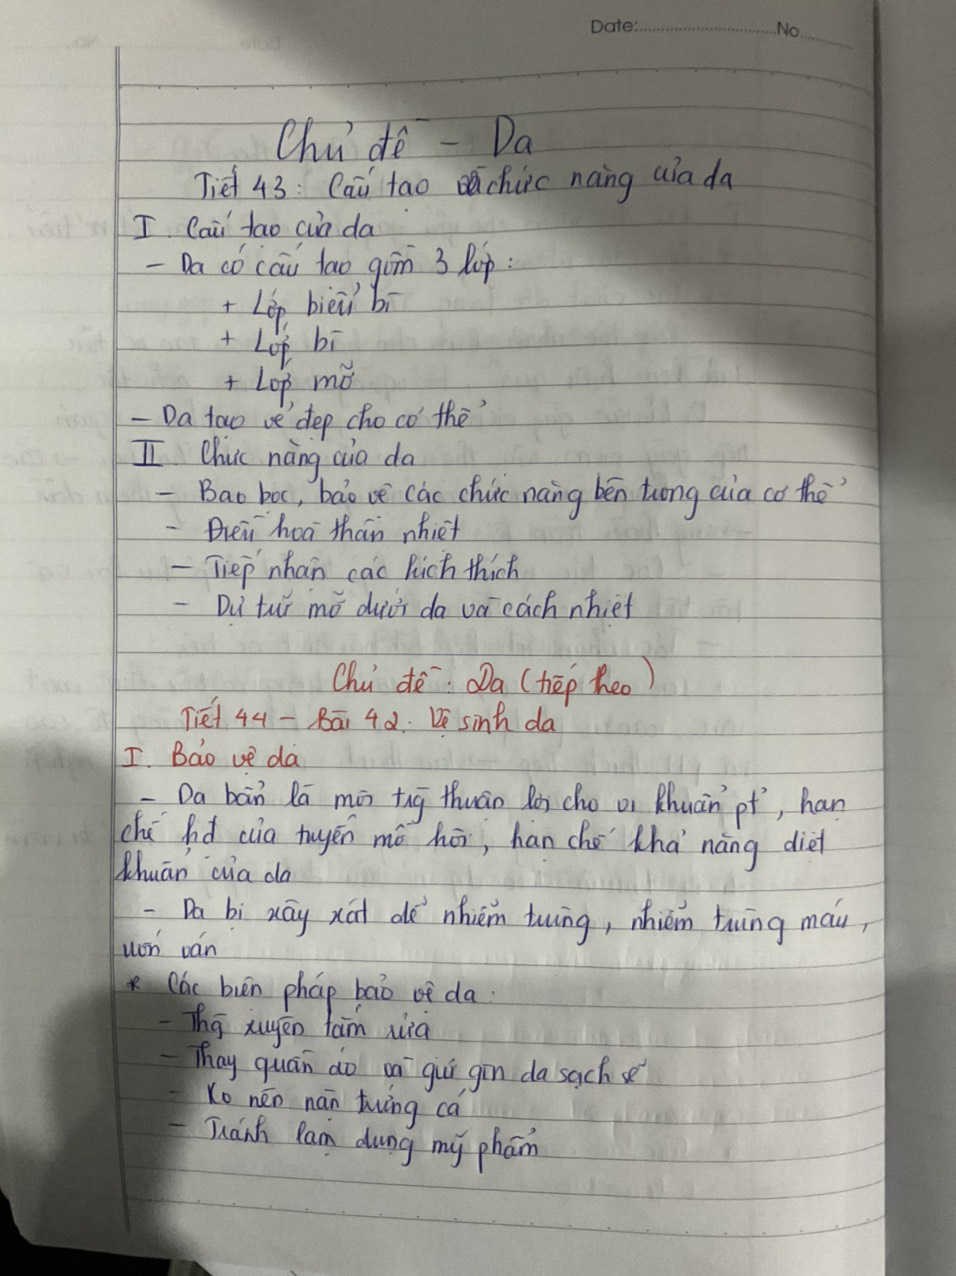 Date: No
Chủ đề - Da
Tiết 43: Cấu tạo và chức năng của da
I. Cấu tạo của da
- Da có cấu tạo gồm 3 lớp:
+ Lớp biểu bì
+ Lớp bì
+ Lớp mỡ
- Da tạo vẻ đẹp cho cơ thể
II Chức năng của da
- Bao bọc, bảo vệ các chức năng bên trong của cơ thể
- Điều hoà thân nhiệt
- Tiếp nhận các kích thích
- Dự trữ mỡ dưới da và cách nhiệt
Chủ đề: Da (tiếp theo)
Tiết 44 - Bài 42: Vệ sinh da
I. Bảo vệ da
- Da bẩn là môi trg thuận lợi cho vi khuẩn pt, hạn
chế hđ của tuyến mồ hôi, hạn chế khả năng diệt
khuẩn của da
- Da bị xây xát dễ nhiễm trùng, nhiễm trùng máu,
uốn ván
* Các biện pháp bảo vệ da:
- Thg xuyên tắm rửa
- Thay quần áo và giữ gìn da sạch sẽ
- Ko nên nặn trứng cá
- Tránh lạm dụng mỹ phẩm